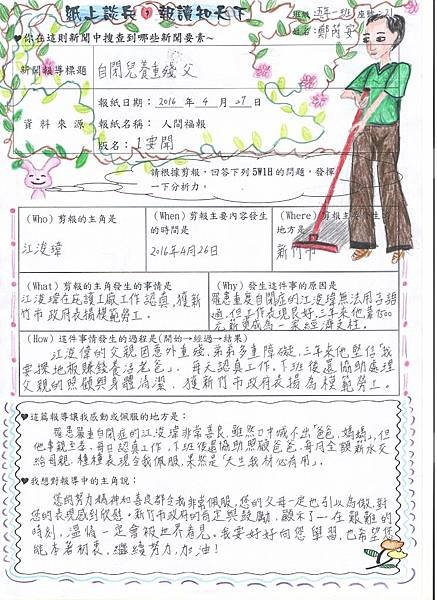 紙上談長，報讀知天下
班級 五年一班 座號:21
♥你在這則新聞中搜查到哪些新聞要素~
姓名: 鄭芮安
新聞報導標題
自閉兒養重殘父
資料來源
報紙日期: 2016 年 4 月 27 日
報紙名稱: 人間福報
版名: 要聞
請根據剪報，回答下列 5W1H 的問題，發揮一下分析力。
(Who) 剪報的主角是
江浚瑋
(When) 剪報主要內容發生的時間是
2016年4月26日
(Where) 剪報主要發生的地方是
新竹市
(What) 剪報的主角發生的事情是
江浚瑋在庇護工廠工作認真，獲新
竹市政府表揚模範勞工。
(Why) 發生這件事的原因是
罹患重度自閉症的江浚瑋無法用言語
但工作表現良好，三年來他
元薪更成為一家經濟支柱。
(How) 這件事情發生的過程是(開始→經過→結果)
江浚偉的父親因意外重殘，弟弟多重障礙，三年來他堅付「我
要擦地板賺錢養活老爸」，每天認真工作，下班後還協助處理
父親的照顧與身體清潔，獲新竹市政府表揚為模範勞工。
♥這篇報導讓我感動或佩服的地方是:
罹患嚴重自閉症的江浚瑋非常善良，雖然口中喊不出「爸爸、媽媽」，但
他事親至孝，每日認真工作，下班後還協助照顧爸爸，每月全額薪水交
給母親，種種表現令我佩服，果然是「天生我材必有用」。
♥我想對報導中的主角說:
您的努力精神和善良都令我非常佩服，您的父母一定也引以為傲，對
您的表現感到欣慰。新竹市政府的肯定與鼓勵，顯示了一在艱難的
時刻，溫情一定會被世界看見。我要好好向您學習，也希望您
能本著初衷，繼續努力，加油！